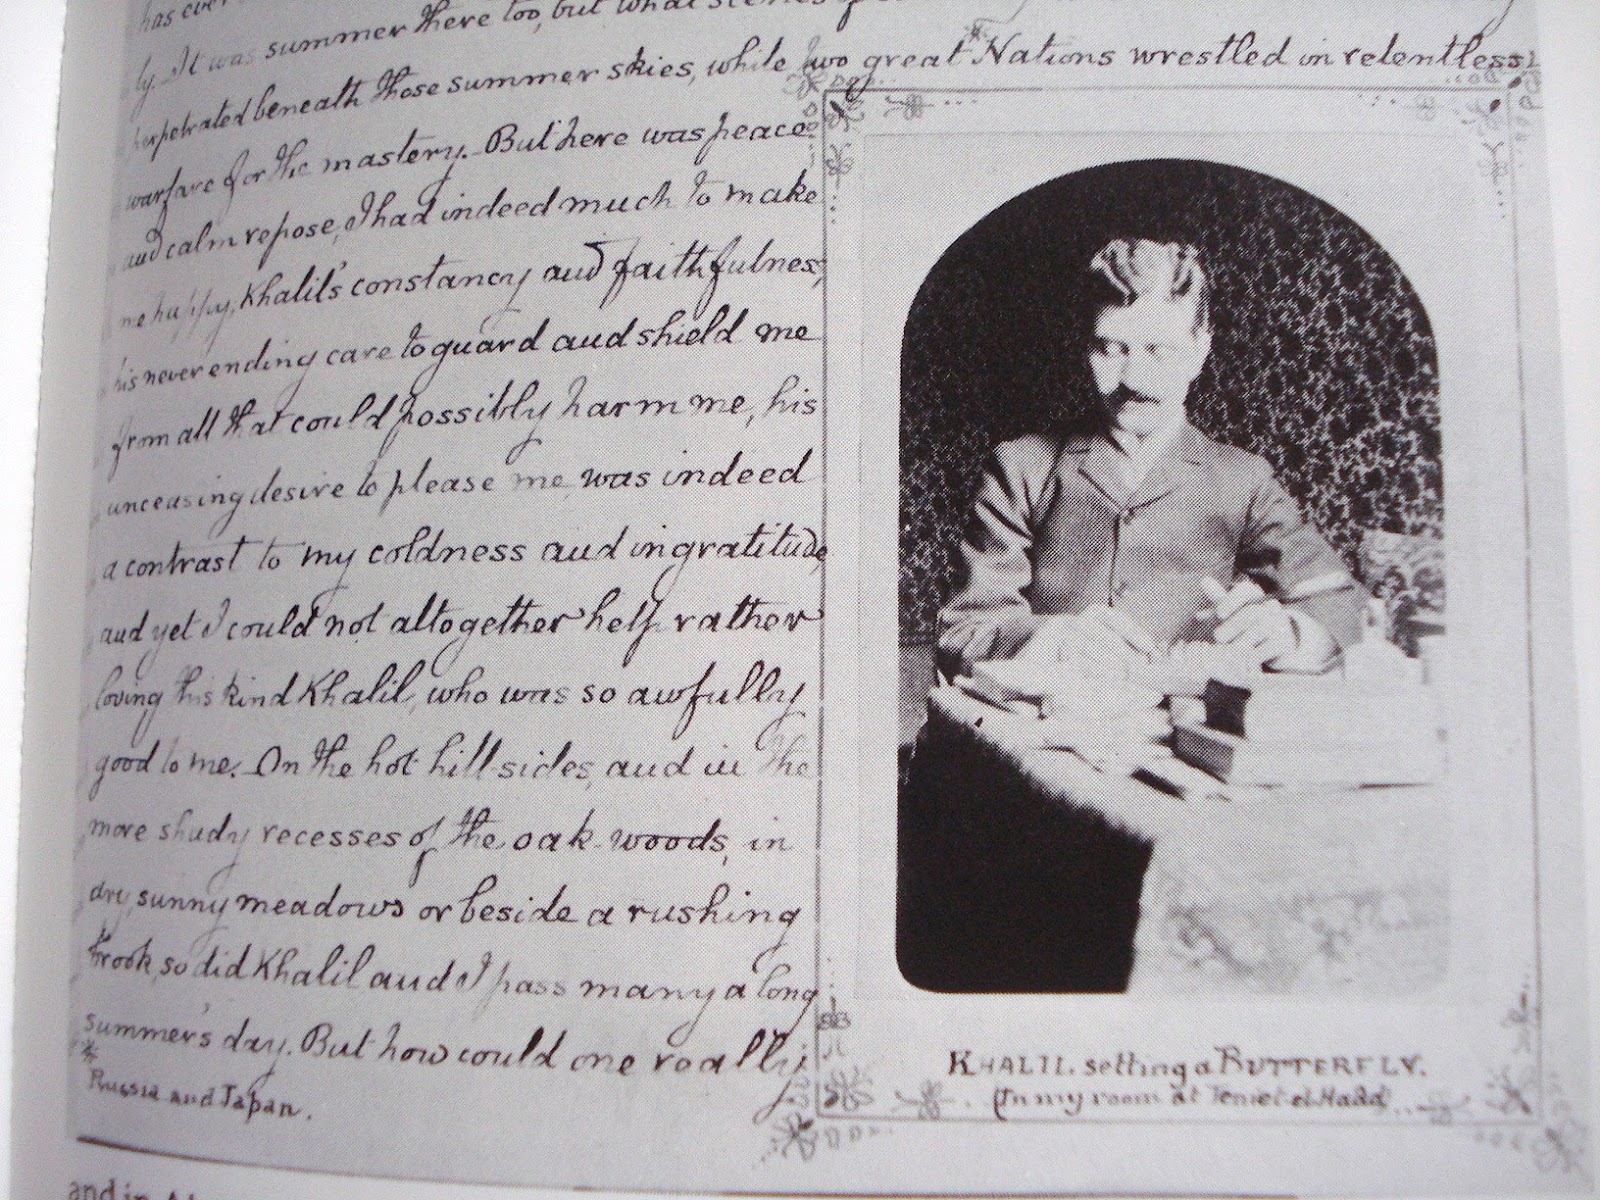 has ever
ly. It was summer there too, but what scenes
perpetrated beneath those summer skies, while two great Nations wrestled in relentless
warfare for the mastery. But here was peace
and calm repose, I had indeed much to make
me happy, Khalil's constancy and faithfulness,
his never ending care to guard and shield me
from all that could possibly harm me, his
unceasing desire to please me, was indeed
a contrast to my coldness and ingratitude,
and yet I could not altogether help rather
loving this kind Khalil, who was so awfully
good to me. On the hot hill sides, and in the
more shady recesses of the oak-woods, in
dry, sunny meadows or beside a rushing
brook, so did Khalil and I pass many a long
summer's day. But how could one really
* Russia and Japan.
KHALIL setting a BUTTERFLY.
(In my room at Teniet-el-Haâd)
and in